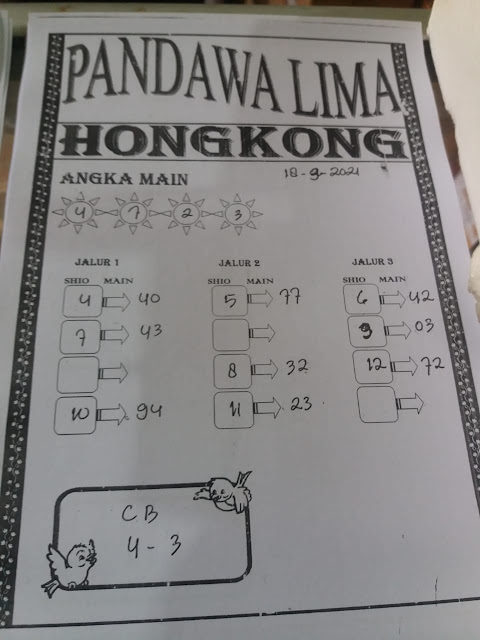 PANDAWA LIMA
HONGKONG
ANGKA MAIN 18-9-2021
4 7 2 3
JALUR 1 JALUR 2 JALUR 3
SHIO MAIN SHIO MAIN SHIO MAIN
4 40 5 77 6 42
7 43 9 03
8 32 12 72
10 94 11 23
CB
4 - 3